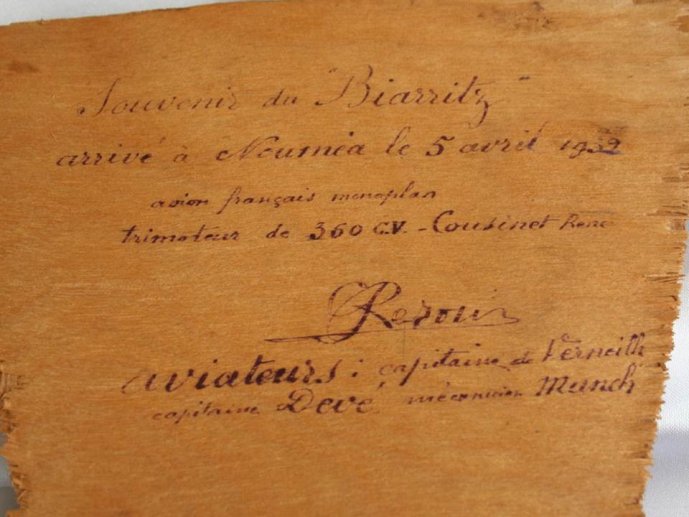 Souvenir du "Biarritz"
arrivé à Nouméa le 5 avril 1932
avion français monoplan
trimoteur de 360 C.V. - Cousinet René
aviateurs : capitaine de Verneilh
capitaine Devé, mécanicien Munch